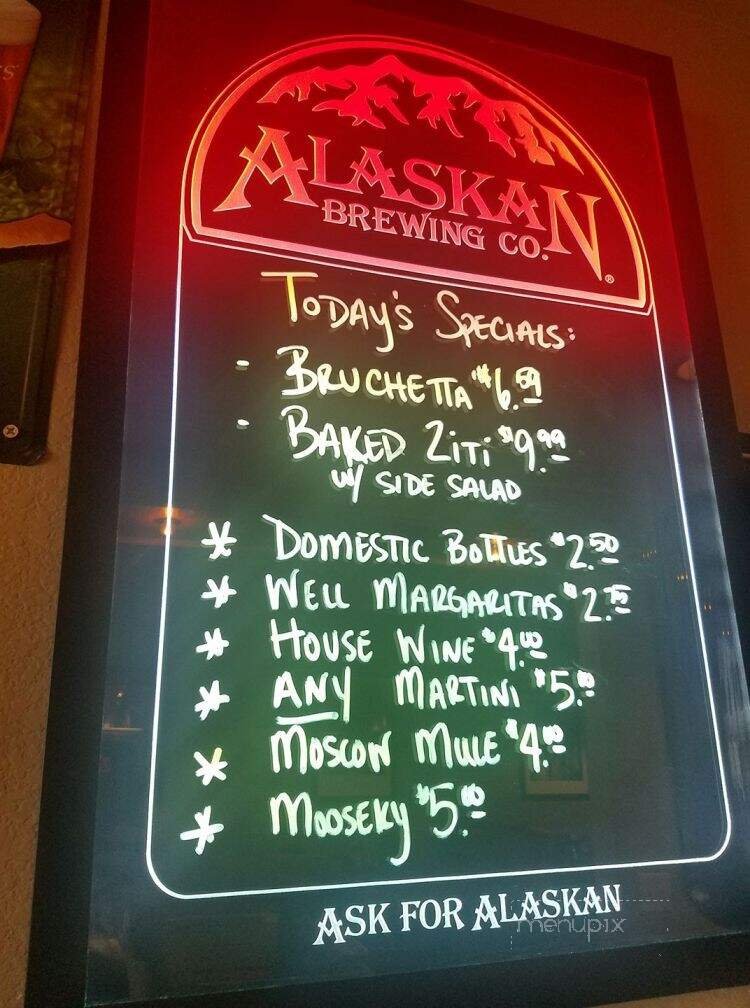 ALASKAN
BREWING CO.®
TODAY'S SPECIALS:
- BRUCHETTA $6.59
- BAKED ZITI $9.99
W/ SIDE SALAD
* DOMESTIC BOTTLES $2.50
* WELL MARGARITAS $2.75
* HOUSE WINE $4.00
* ANY MARTINI $5.00
* MOSCOW MULE $4.00
* MOOSEKY $5.00
ASK FOR ALASKAN
menupix